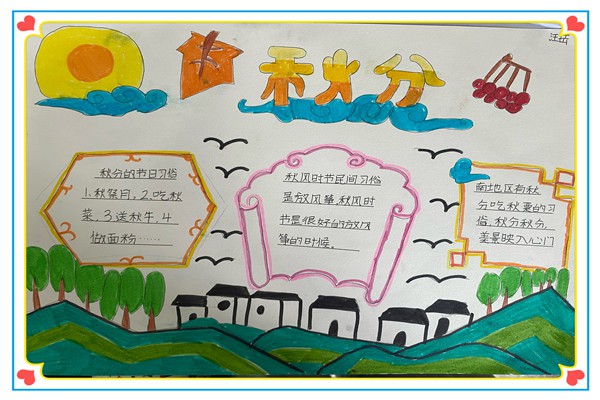 汪岳
秋分
秋分的节日习俗
1.秋祭月,2.吃秋
菜,3送秋牛,4
做面粉……
秋风时节民间习俗
是放风筝,秋风时
节是很好的放风
筝的时候。
南地区有秋
分吃秋栗的习
俗,秋分秋分,
美景映入心门